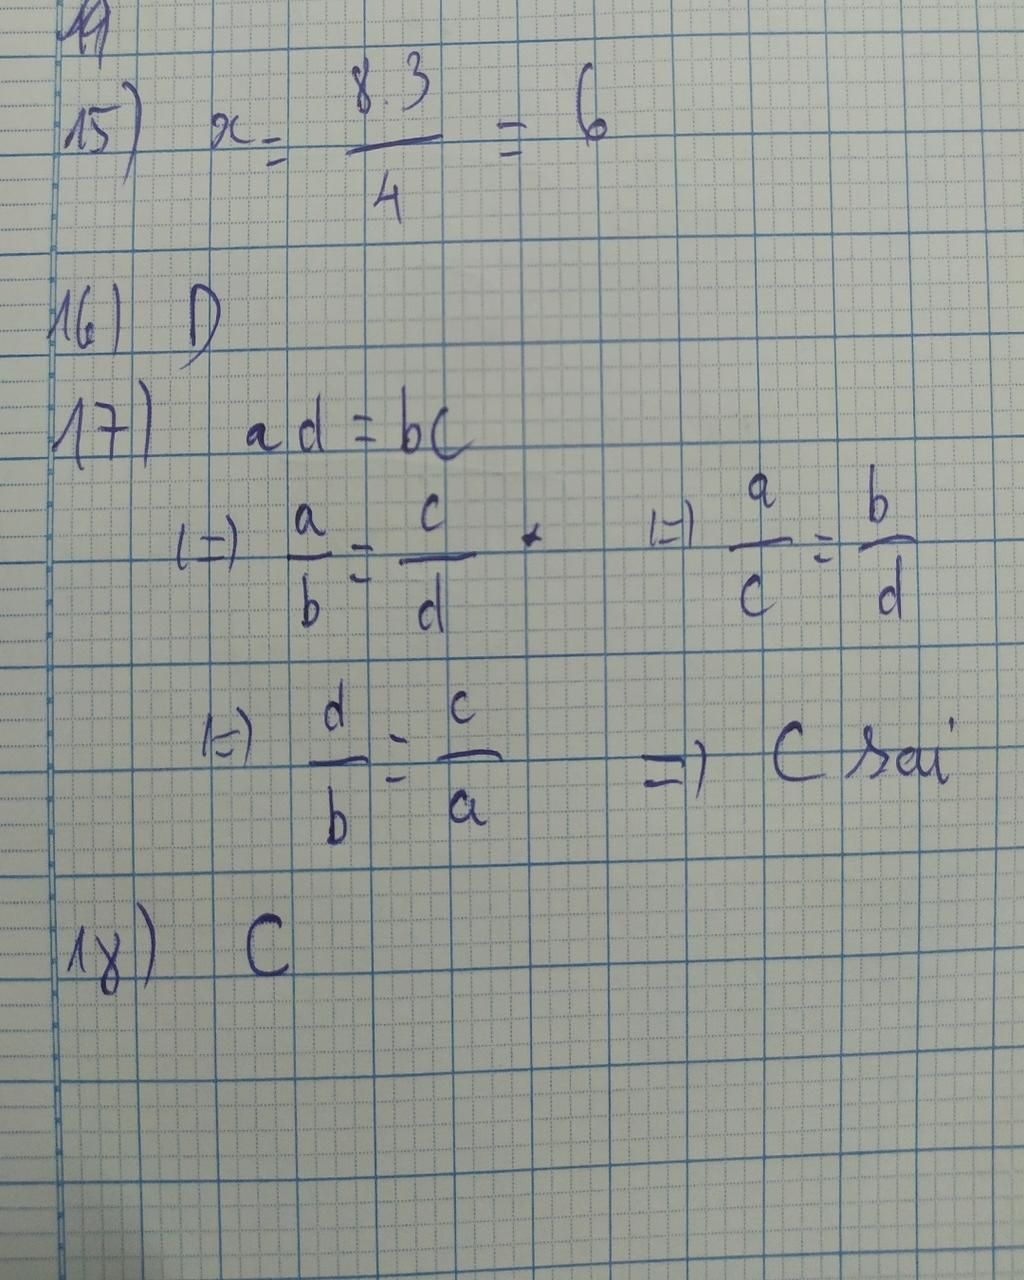 15) x = 8.3/4 = 6
16) D
17) ad = bc
(=) a/b = c/d . (=) a/c = b/d
(=) d/b = c/a => C sai
18) C